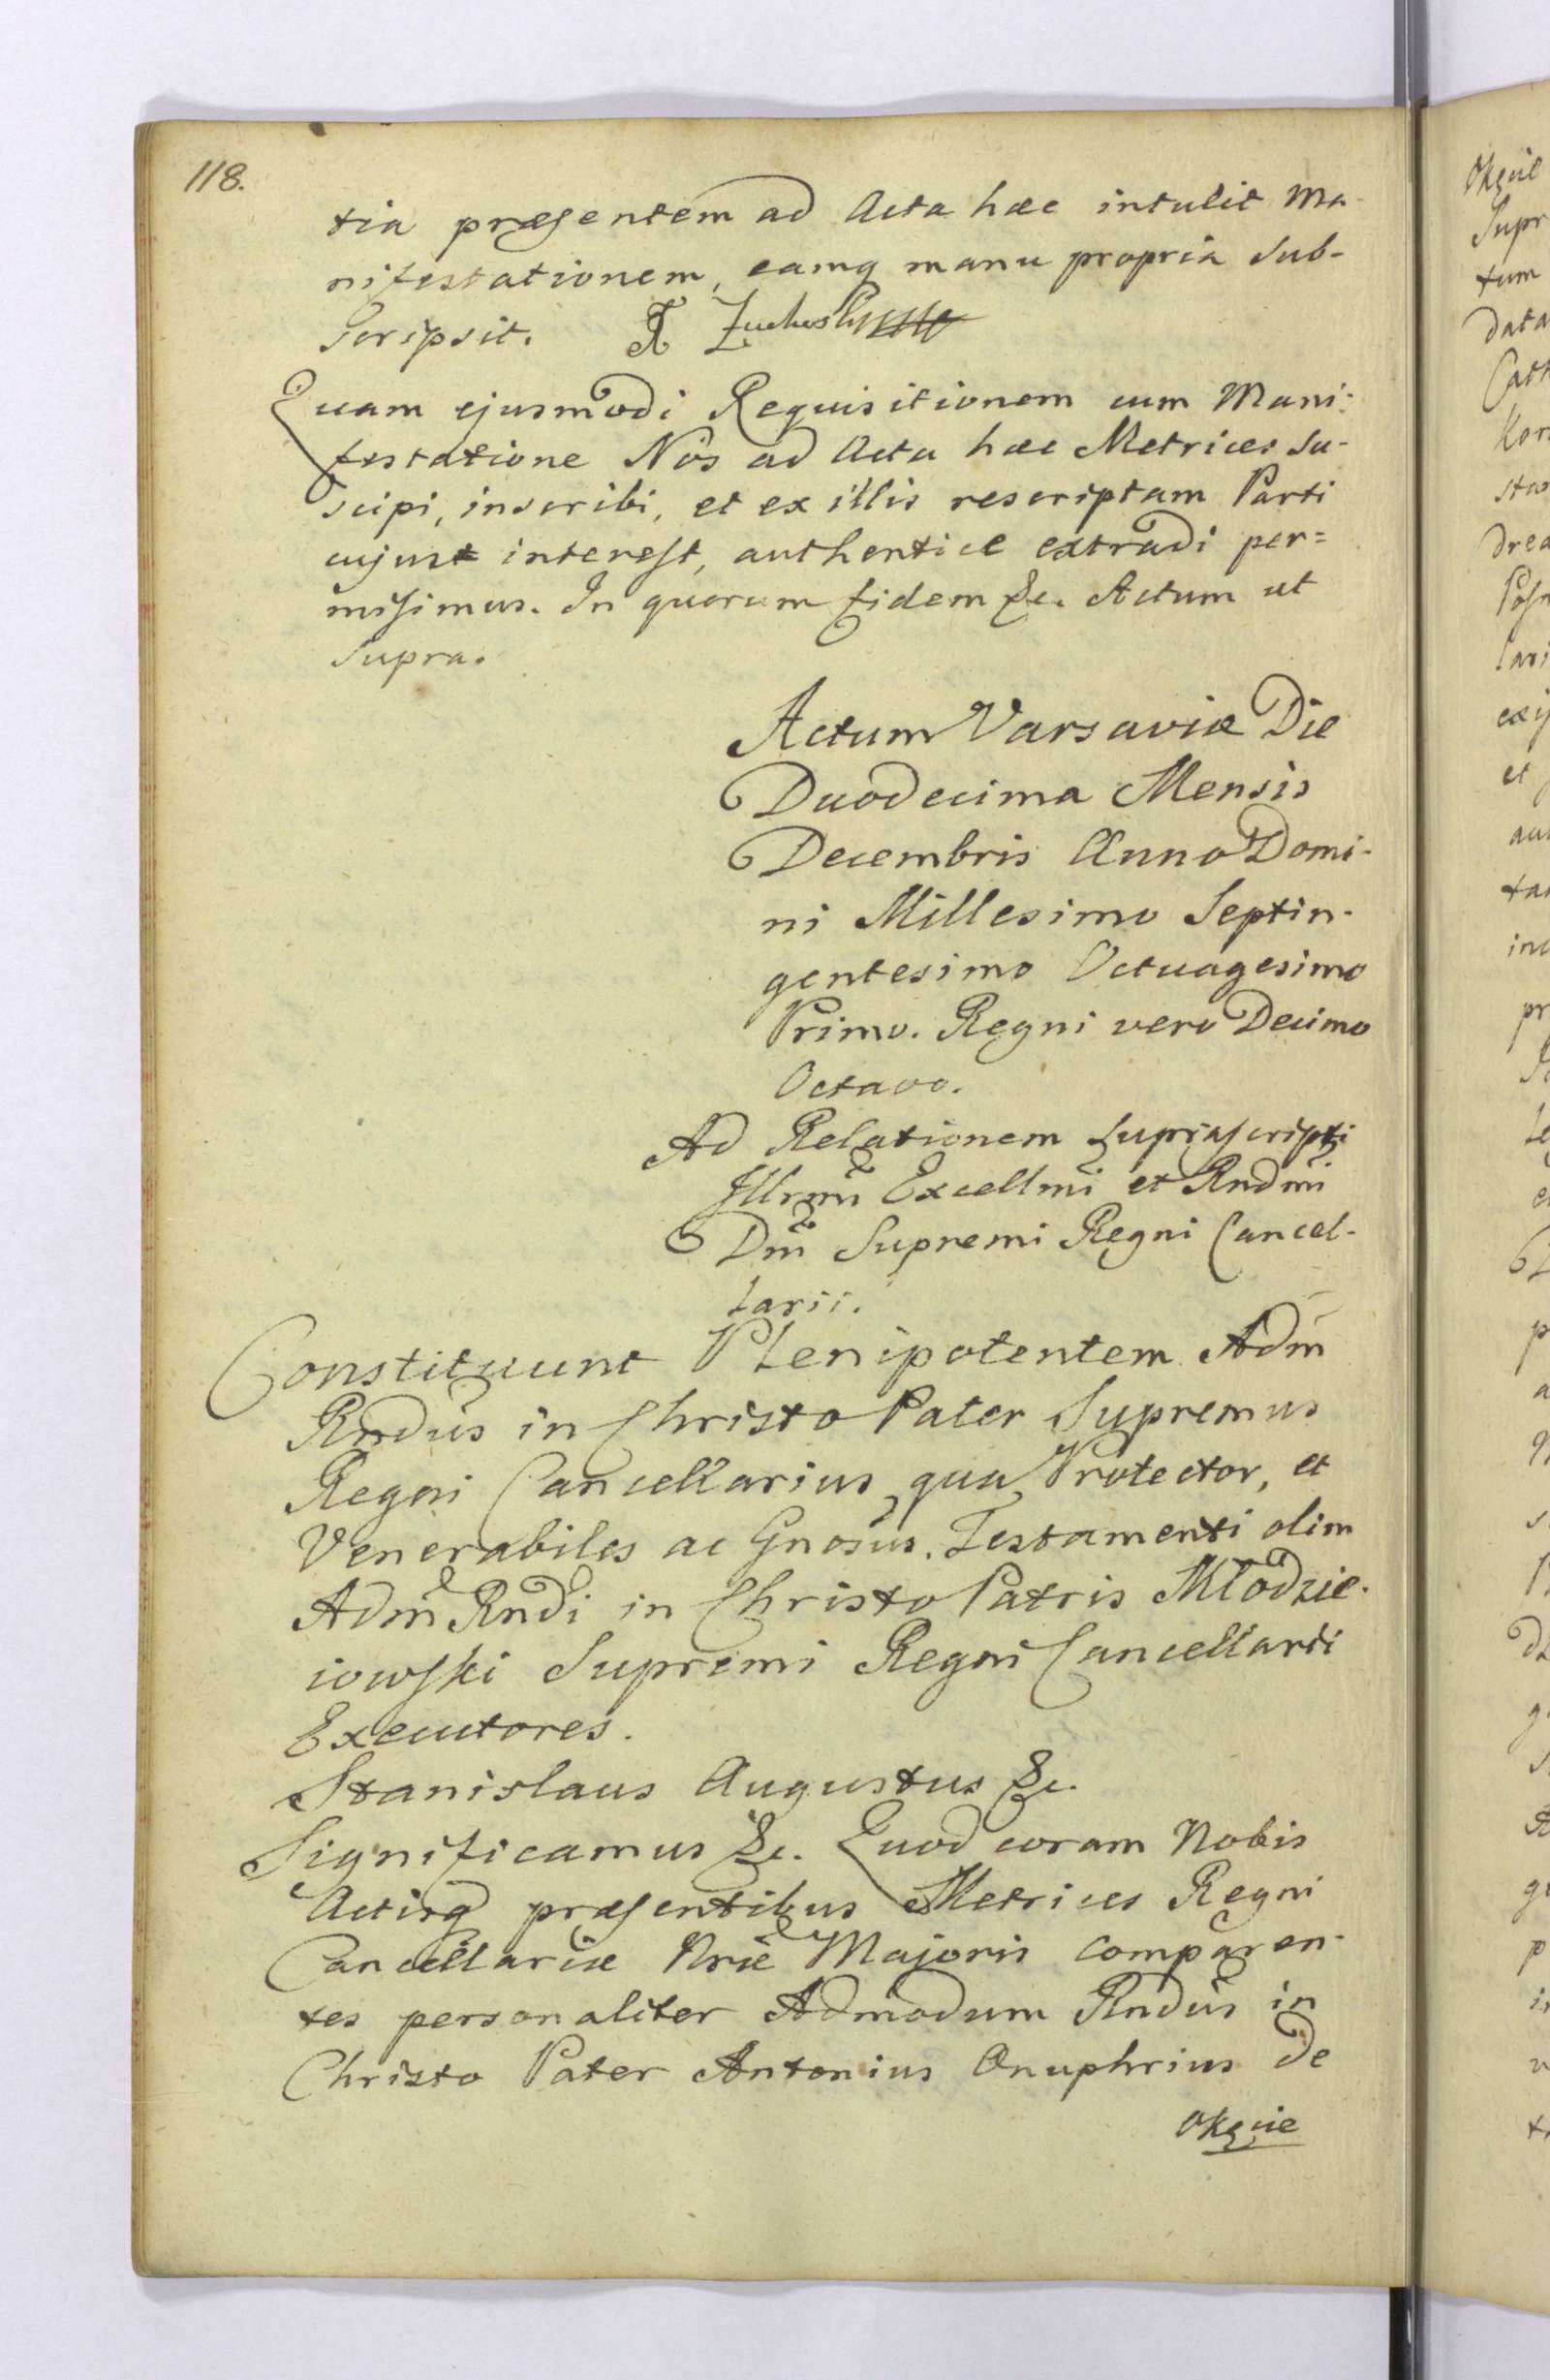 118.
tia præsentem ad Acta hæc intulit Ma-
nifestationem, eamq manu propria sub-
scripsit.
Quam ejusmodi Requisitionem cum Mani-
festatione Nos ad Acta hæc Metrices su-
scipi, inscribi, et ex illis rescriptam Parti
cujus interest, authentice extradi per=
misimus. In quorum fidem &c. Actum ut
supra.
Actum Varsaviæ Die
Duodecima Mensis
Decembris Anno Domi-
ni Millesimo Septin-
gentesimo Octuagesimo
Primo. Regni vero Decimo
Octavo.
Ad Relationem suprascripti
Illrmi Excellmi et Rndmi
Dni Supremi Regni Cancel-
larii.
Constituunt Plenipotentem Adm
Rndus in Christo Pater Supremus
Regni Cancellarius qua Protector, et
Venerabiles ac Gnosus. Testamenti olim
Adm Rndi in Christo Patris Młodzie-
iowski Supremi Regni Cancellarii
Executores.
Stanislaus Augustus &c.
Significamus &c. Quod coram Nobis
Actisq præsentibus Metrices Regni
Cancellariæ Nræ Majoris comparen-
tes personaliter Admodum Rndus in
Christo Pater Antonius Onuphrius de
Okęcie